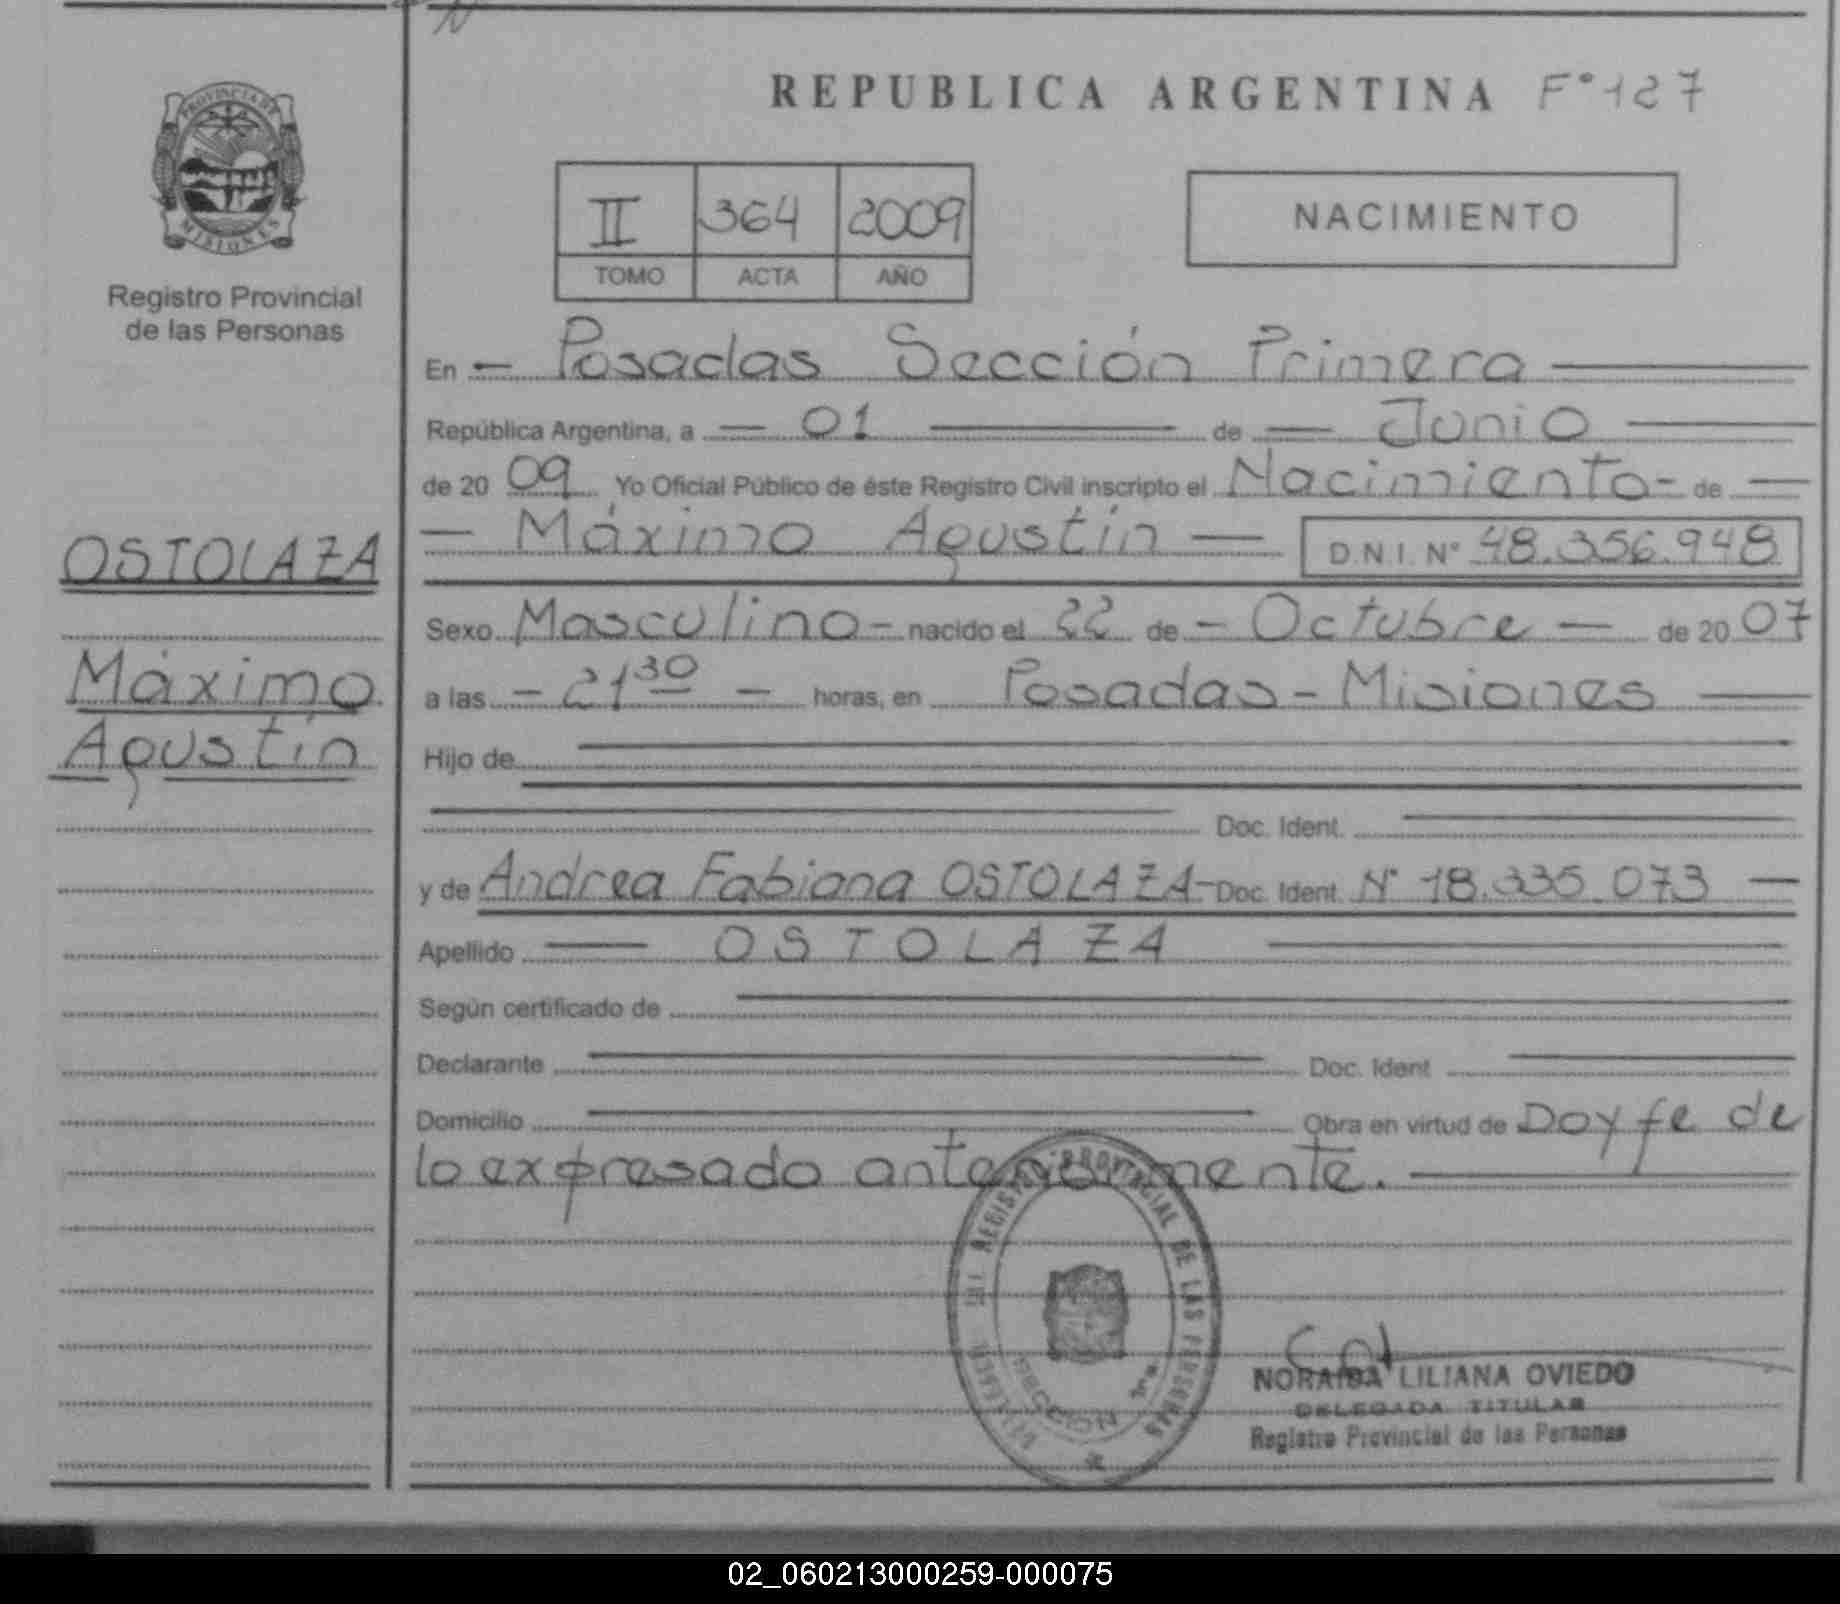 REPUBLICA ARGENTINA F° 127
PROVINCIA DE
MISIONES
Registro Provincial
de las Personas
II 364 2009
TOMO ACTA AÑO
NACIMIENTO
En Posadas Sección Primera
República Argentina, a 01 de Junio
de 20 09 Yo Oficial Público de éste Registro Civil inscripto el Nacimiento de
Máximo Agustín D.N.I. N° 48.356.948
OSTOLAZA
Máximo
Agustín
Sexo Masculino nacido el 22 de Octubre de 20 07
a las 21 30 horas, en Posadas - Misiones
Hijo de
Doc. Ident.
y de Andrea Fabiana OSTOLAZA Doc. Ident. N° 18.335.073
Apellido OSTOLAZA
Según certificado de
Declarante Doc. Ident
Domicilio Obra en virtud de Doy fe de
lo expresado anteriormente.
REGISTRO PROVINCIAL DE LAS PERSONAS
SECCION 1ra.
NORAIDA LILIANA OVIEDO
DELEGADA TITULAR
Registro Provincial de las Personas
02_060213000259-000075